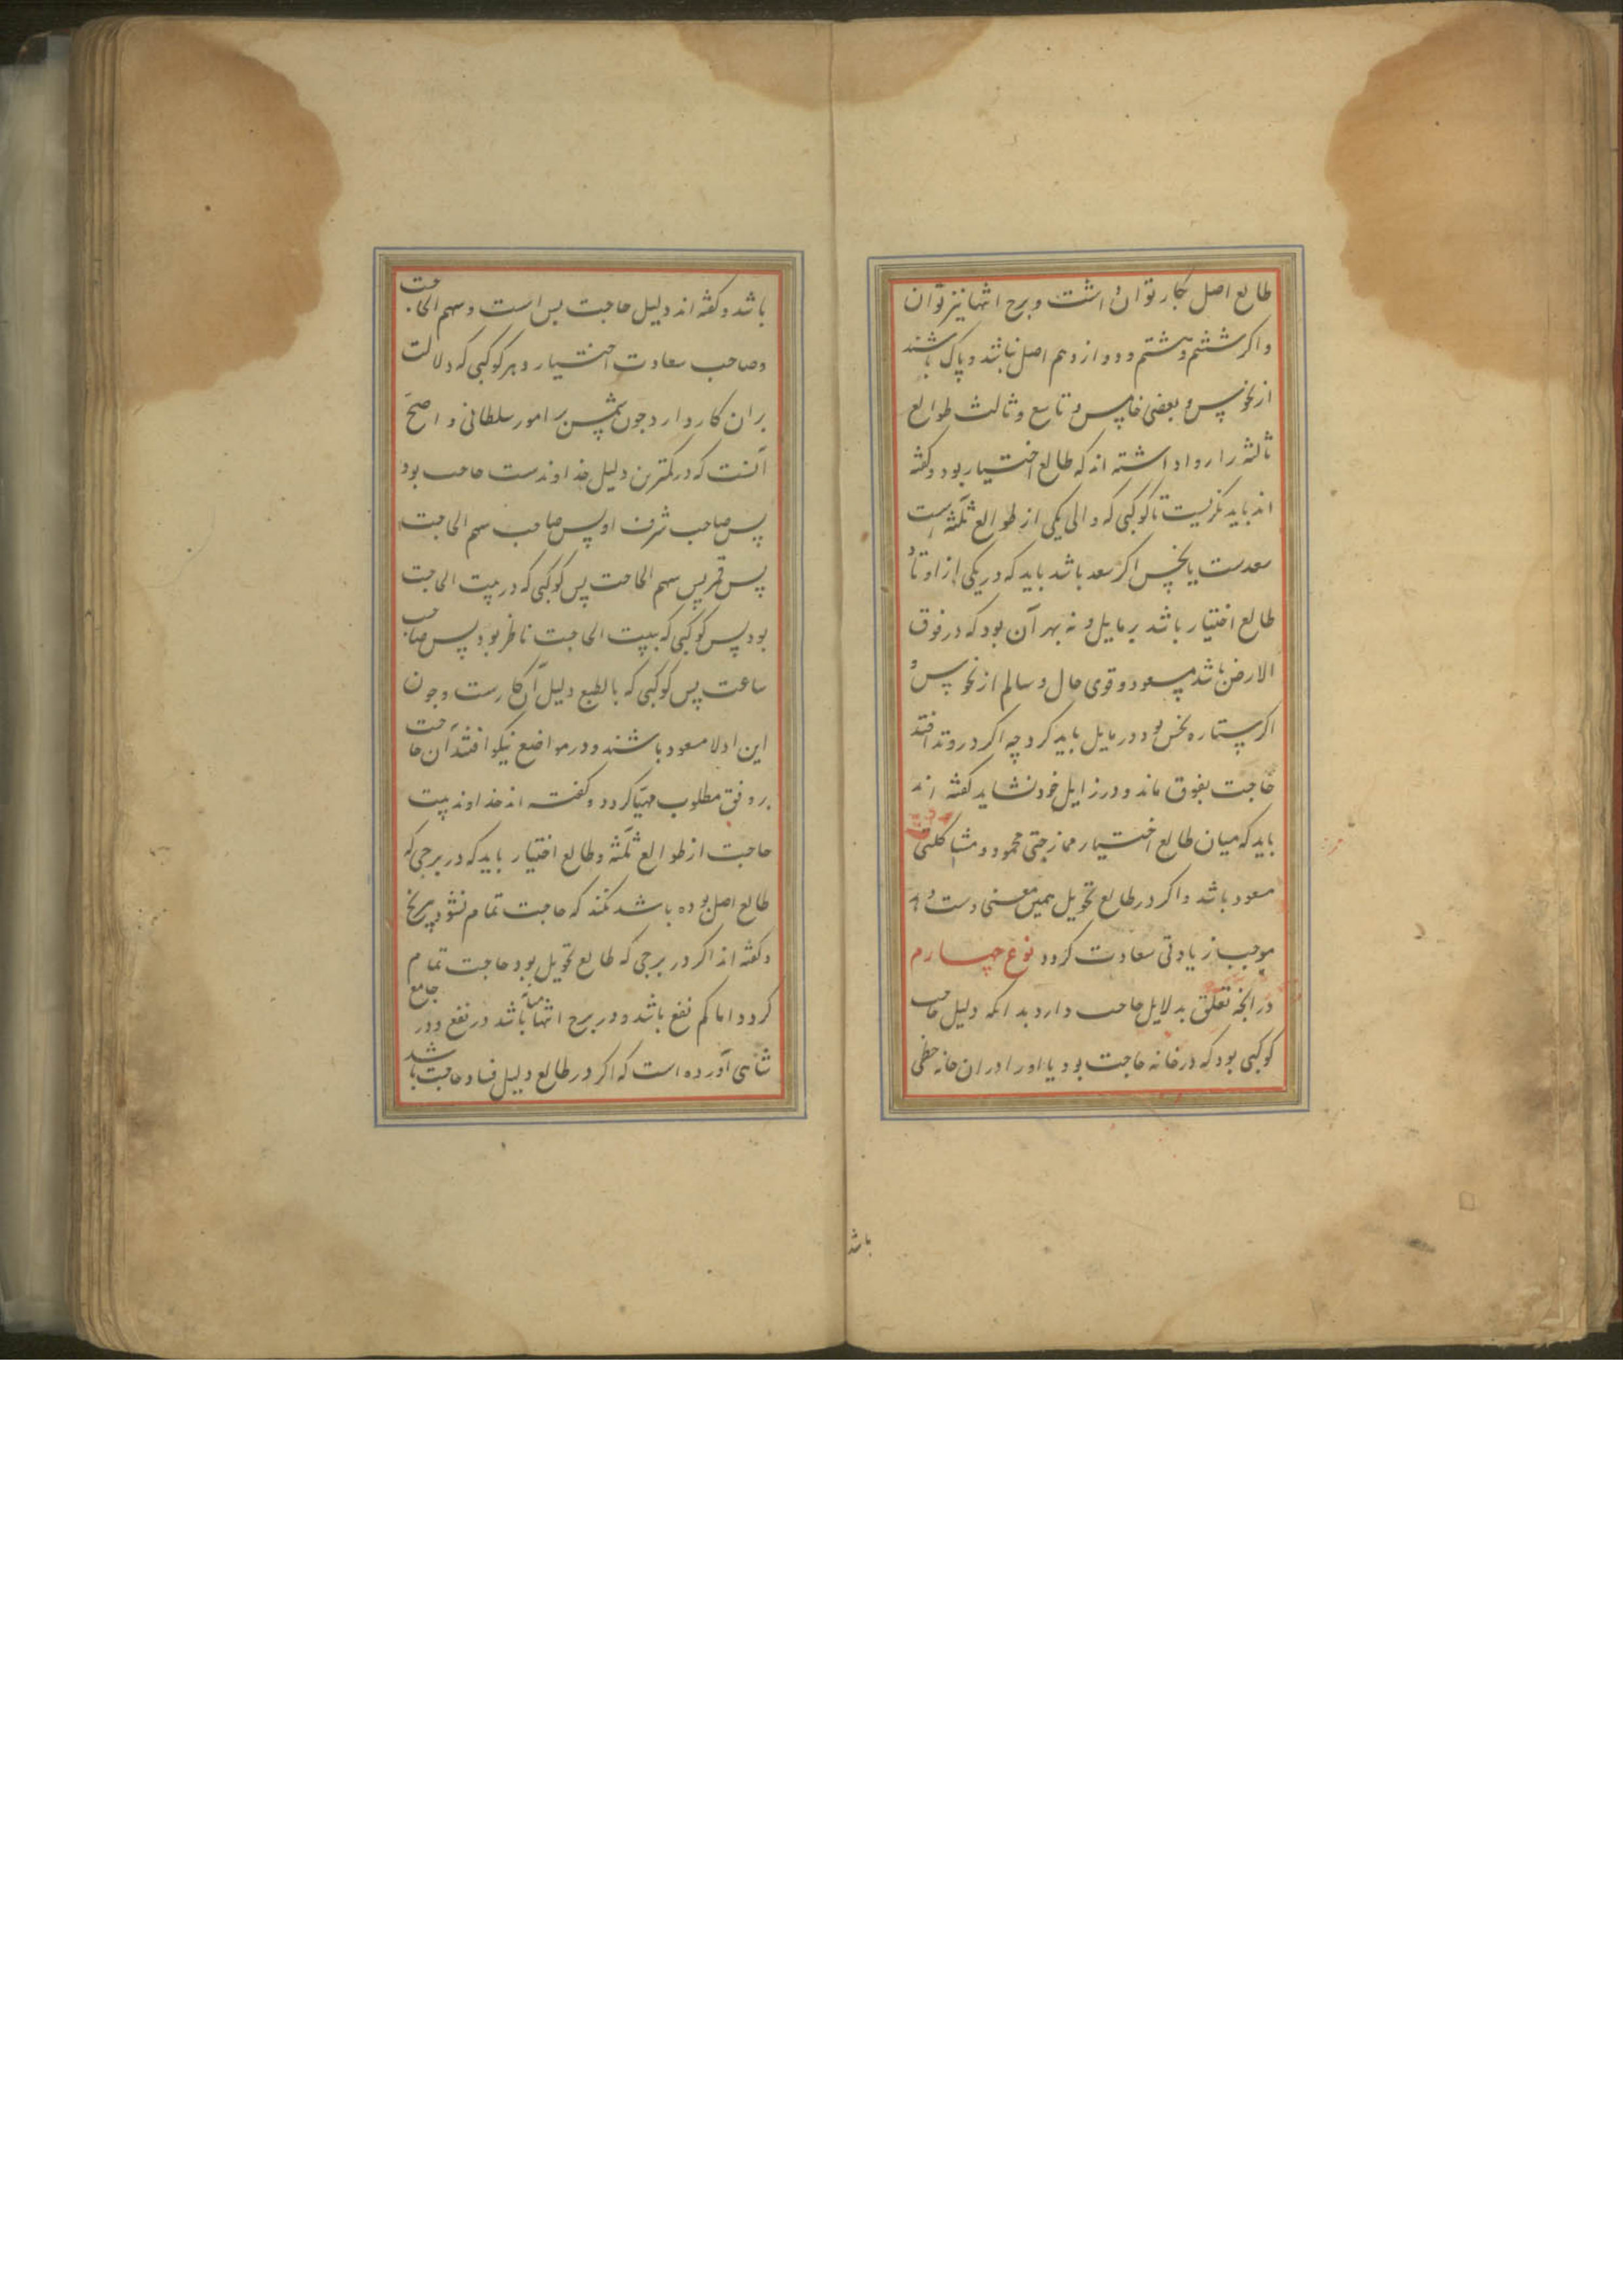 طالع اصل بکار توان داشت و برج انتها نیز توان
و اکر ششم و هشتم و دوازدهم اصل نباشد و پاک باشند
از نحوس و بعضی خامس و تاسع و ثالث طوالع
ثالثه را روا داشته اند که طالع اختیار بود و کفته
اند باید نکریست تا کوکبی که والی یکی از طوالع ثلثه است
سعدست یا نحس اکر سعد باشد باید که در یکی از اوتاد
طالع اختیار باشد بر مایل و نه بهر آن بود که در فوق
الارض باشد مسعود و قوی حال و سالم از نحوس و
اکر ستاره نحس بود در مایل باید کرد چه اکر در وتد افتد
حاجت بفوق ماند و در زایل خود نشاید کفته اند
باید که میان طالع اختیار ممازجتی محمود و مشاکلتی
مسعود باشد و اکر در طالع تحویل همین معنی دست دهد
موجب زیادتی سعادت کردد نوع چهارم
در انچه تعلق بدلایل حاجت دارد بدانکه دلیل حاجت
کوکبی بود که در خانه حاجت بود یا او را در ان خانه حظی
باشد
باشد و کفته اند دلیل حاجت بس است و سهم الحاجت
و صاحب سعادت اختیار و هر کوکبی که دلالت
بران کار دارد چون شمس بر امور سلطانی و اصح
آنست که در کمترین دلیل خداوندست حاجت بود
پس صاحب شرف او پس صاحب سهم الحاجت
پس قمر پس سهم الحاجت پس کوکبی که در بیت الحاجت
بود پس کوکبی که ببیت الحاجت ناظر بود پس صاحب
ساعت پس کوکبی که بالطبع دلیل آن کارست و چون
این ادلا مسعود باشند و در مواضع نیکو افتند آن حاجت
بر وفق مطلوب مهیا کردد و کفته اند خداوند بیت
حاجت از طوالع ثلثه و طالع اختیار باید که در برجی که
طالع اصل بوده باشد نکند که حاجت تمام نشود
و کفته اند اکر در برجی که طالع تحویل بود حاجت تمام
کردد اما کم نفع باشد و در برج انتها میانه باشد در نفع و در جامع
شاهی آورده است که اکر در طالع دلیل فساد حاجت باشد